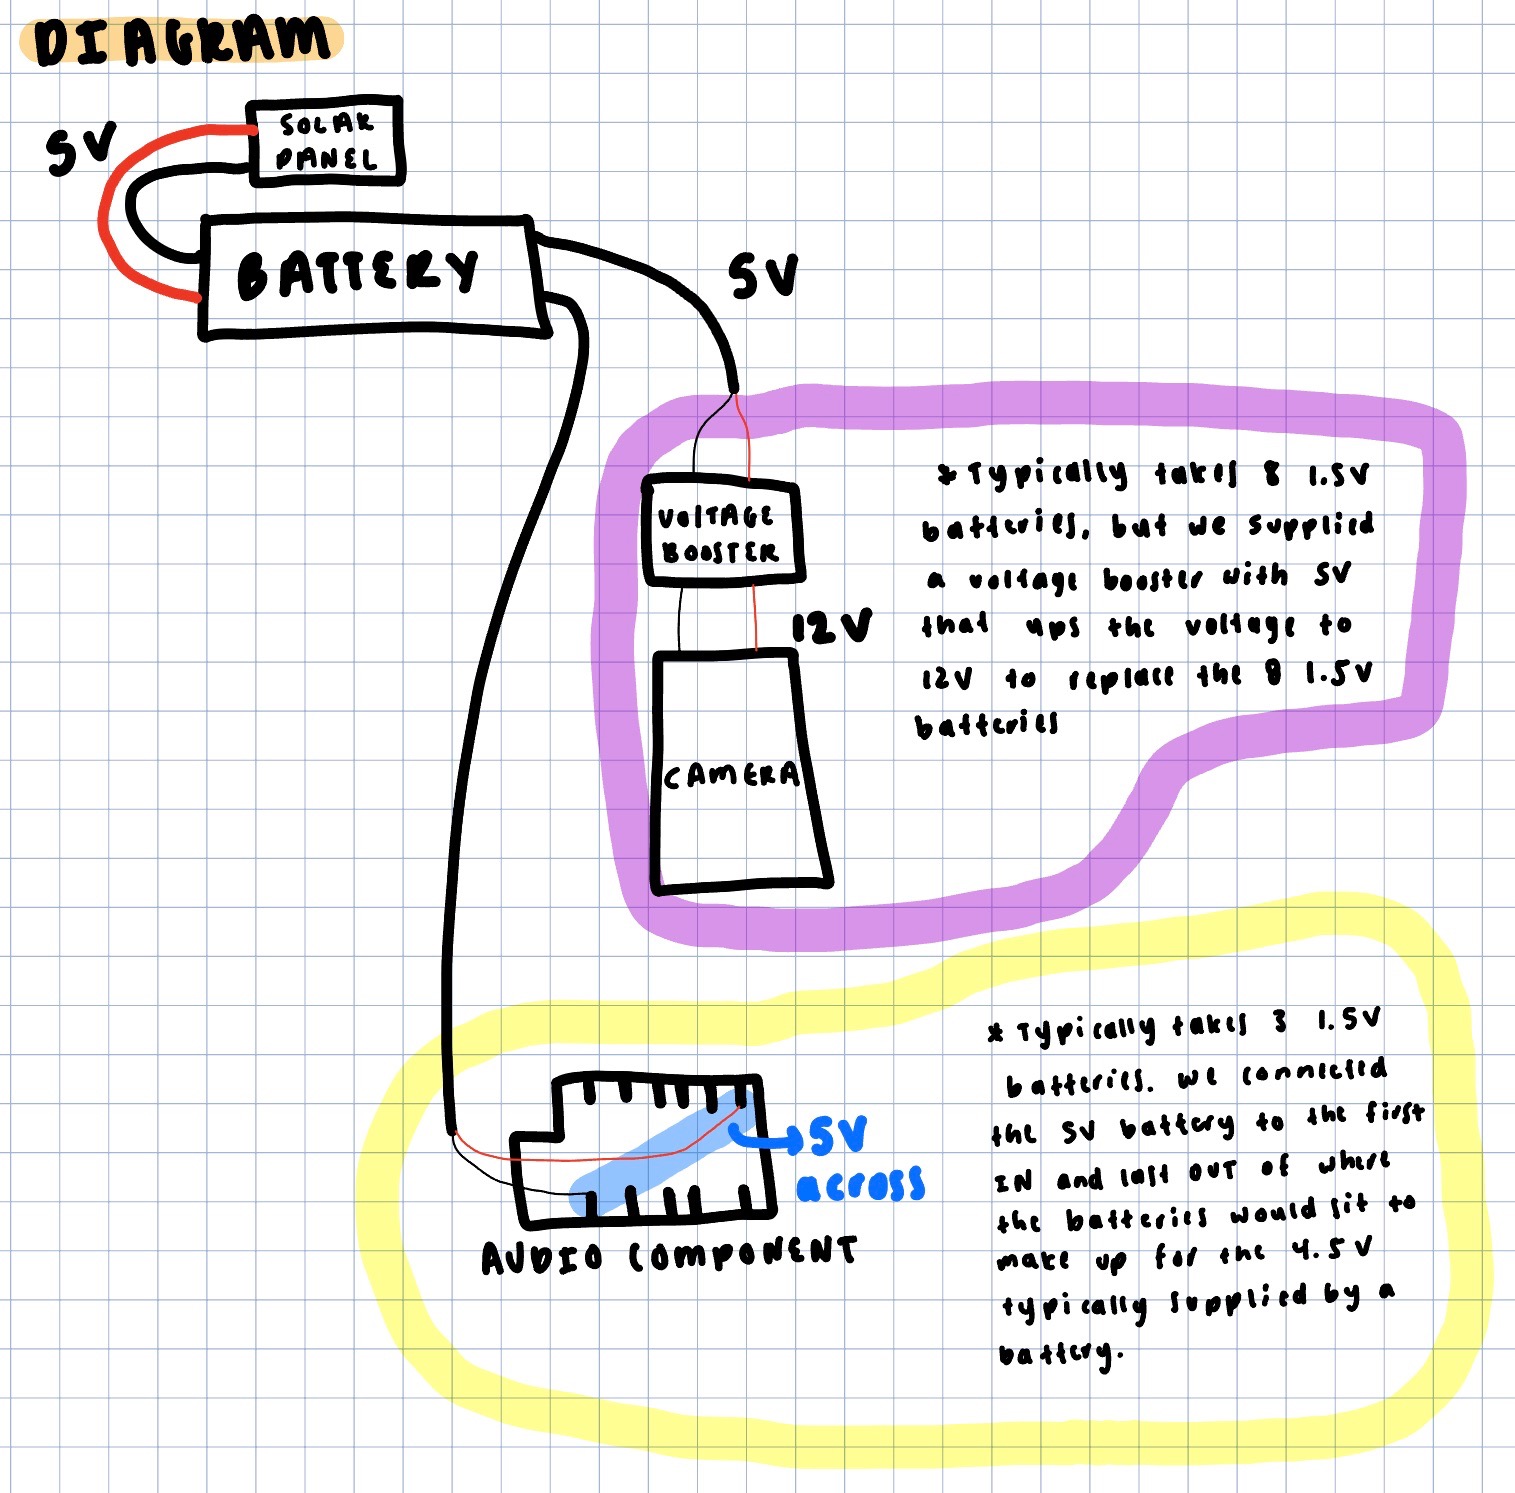 DIAGRAM
SOLAR
PANEL
5V
BATTERY
5V
VOLTAGE
BOOSTER
12V
CAMERA
* Typically takes 8 1.5V
batteries, but we supplied
a voltage booster with 5V
that ups the voltage to
12V to replace the 8 1.5V
batteries
5V
across
AUDIO COMPONENT
* Typically takes 3 1.5V
batteries. We connected
the 5V battery to the first
IN and last OUT of where
the batteries would sit to
make up for the 4.5V
typically supplied by a
battery.